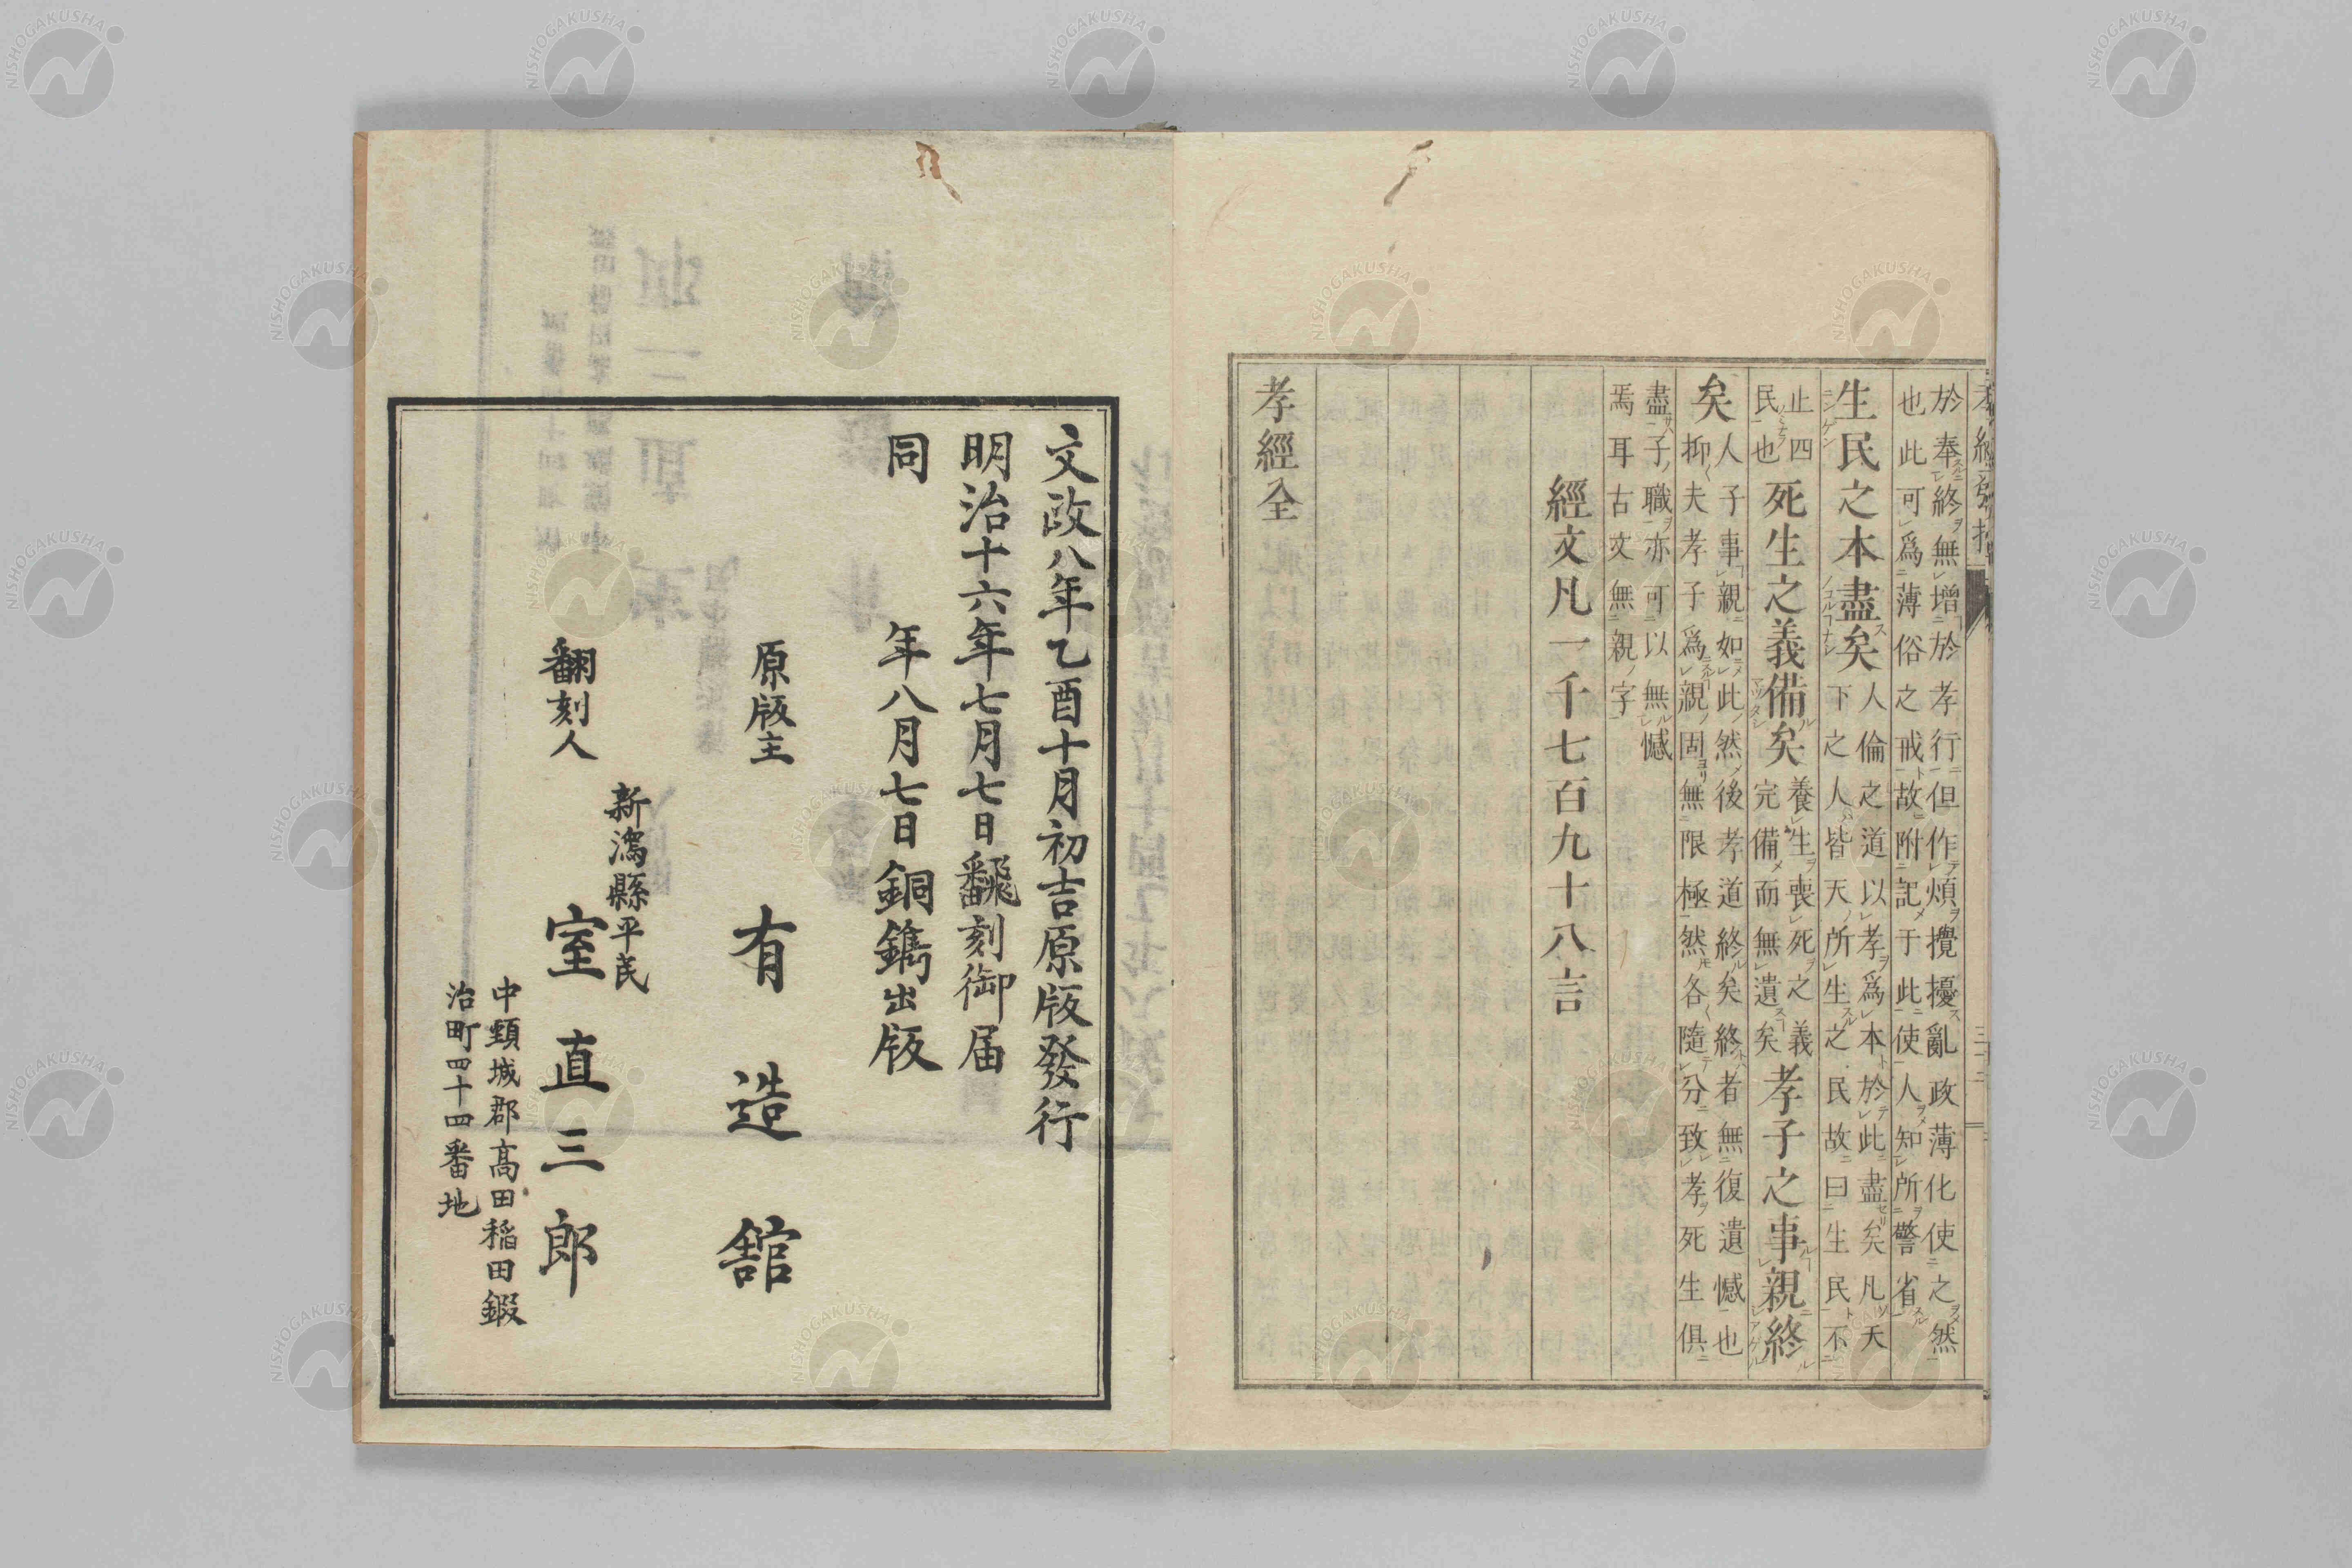 於奉終無増於孝行但作煩攪擾亂政薄化使之然
也此可爲薄俗之戒故附記于此使人知所警省
生民之本盡矣
人倫之道以孝爲本於此盡矣凡天
下之人皆天所生之民故曰生民不
止四
民也
死生之義備矣
養生喪死之義
完備而無遺矣
孝子之事親終
矣
人子事親如此然後孝道終矣終者無復遺憾也
抑夫孝子爲親固無限極然各隨分致孝死生俱
盡子職亦可以無憾
焉耳古文無親字
經文凡一千七百九十八言
孝經全
文政八年乙酉十月初吉原版發行
明治十六年七月七日飜刻御届
同年八月七日銅鐫出版
原版主
有造舘
翻刻人
新潟縣平民
室直三郎
中頸城郡髙田稲田鍜
治町四十四番地
NISHOGAKUSHA